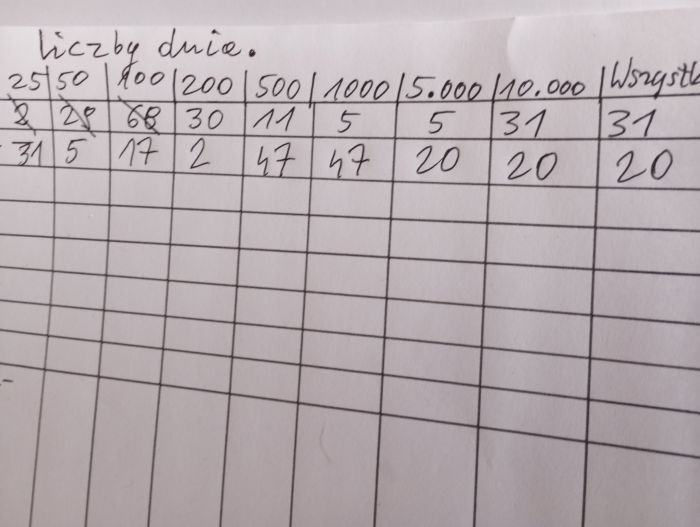 liczby dnia.
25 50 100 200 500 1000 5.000 10.000
2 28 68 30 11 5 5 31 31
31 5 17 2 47 47 20 20 20